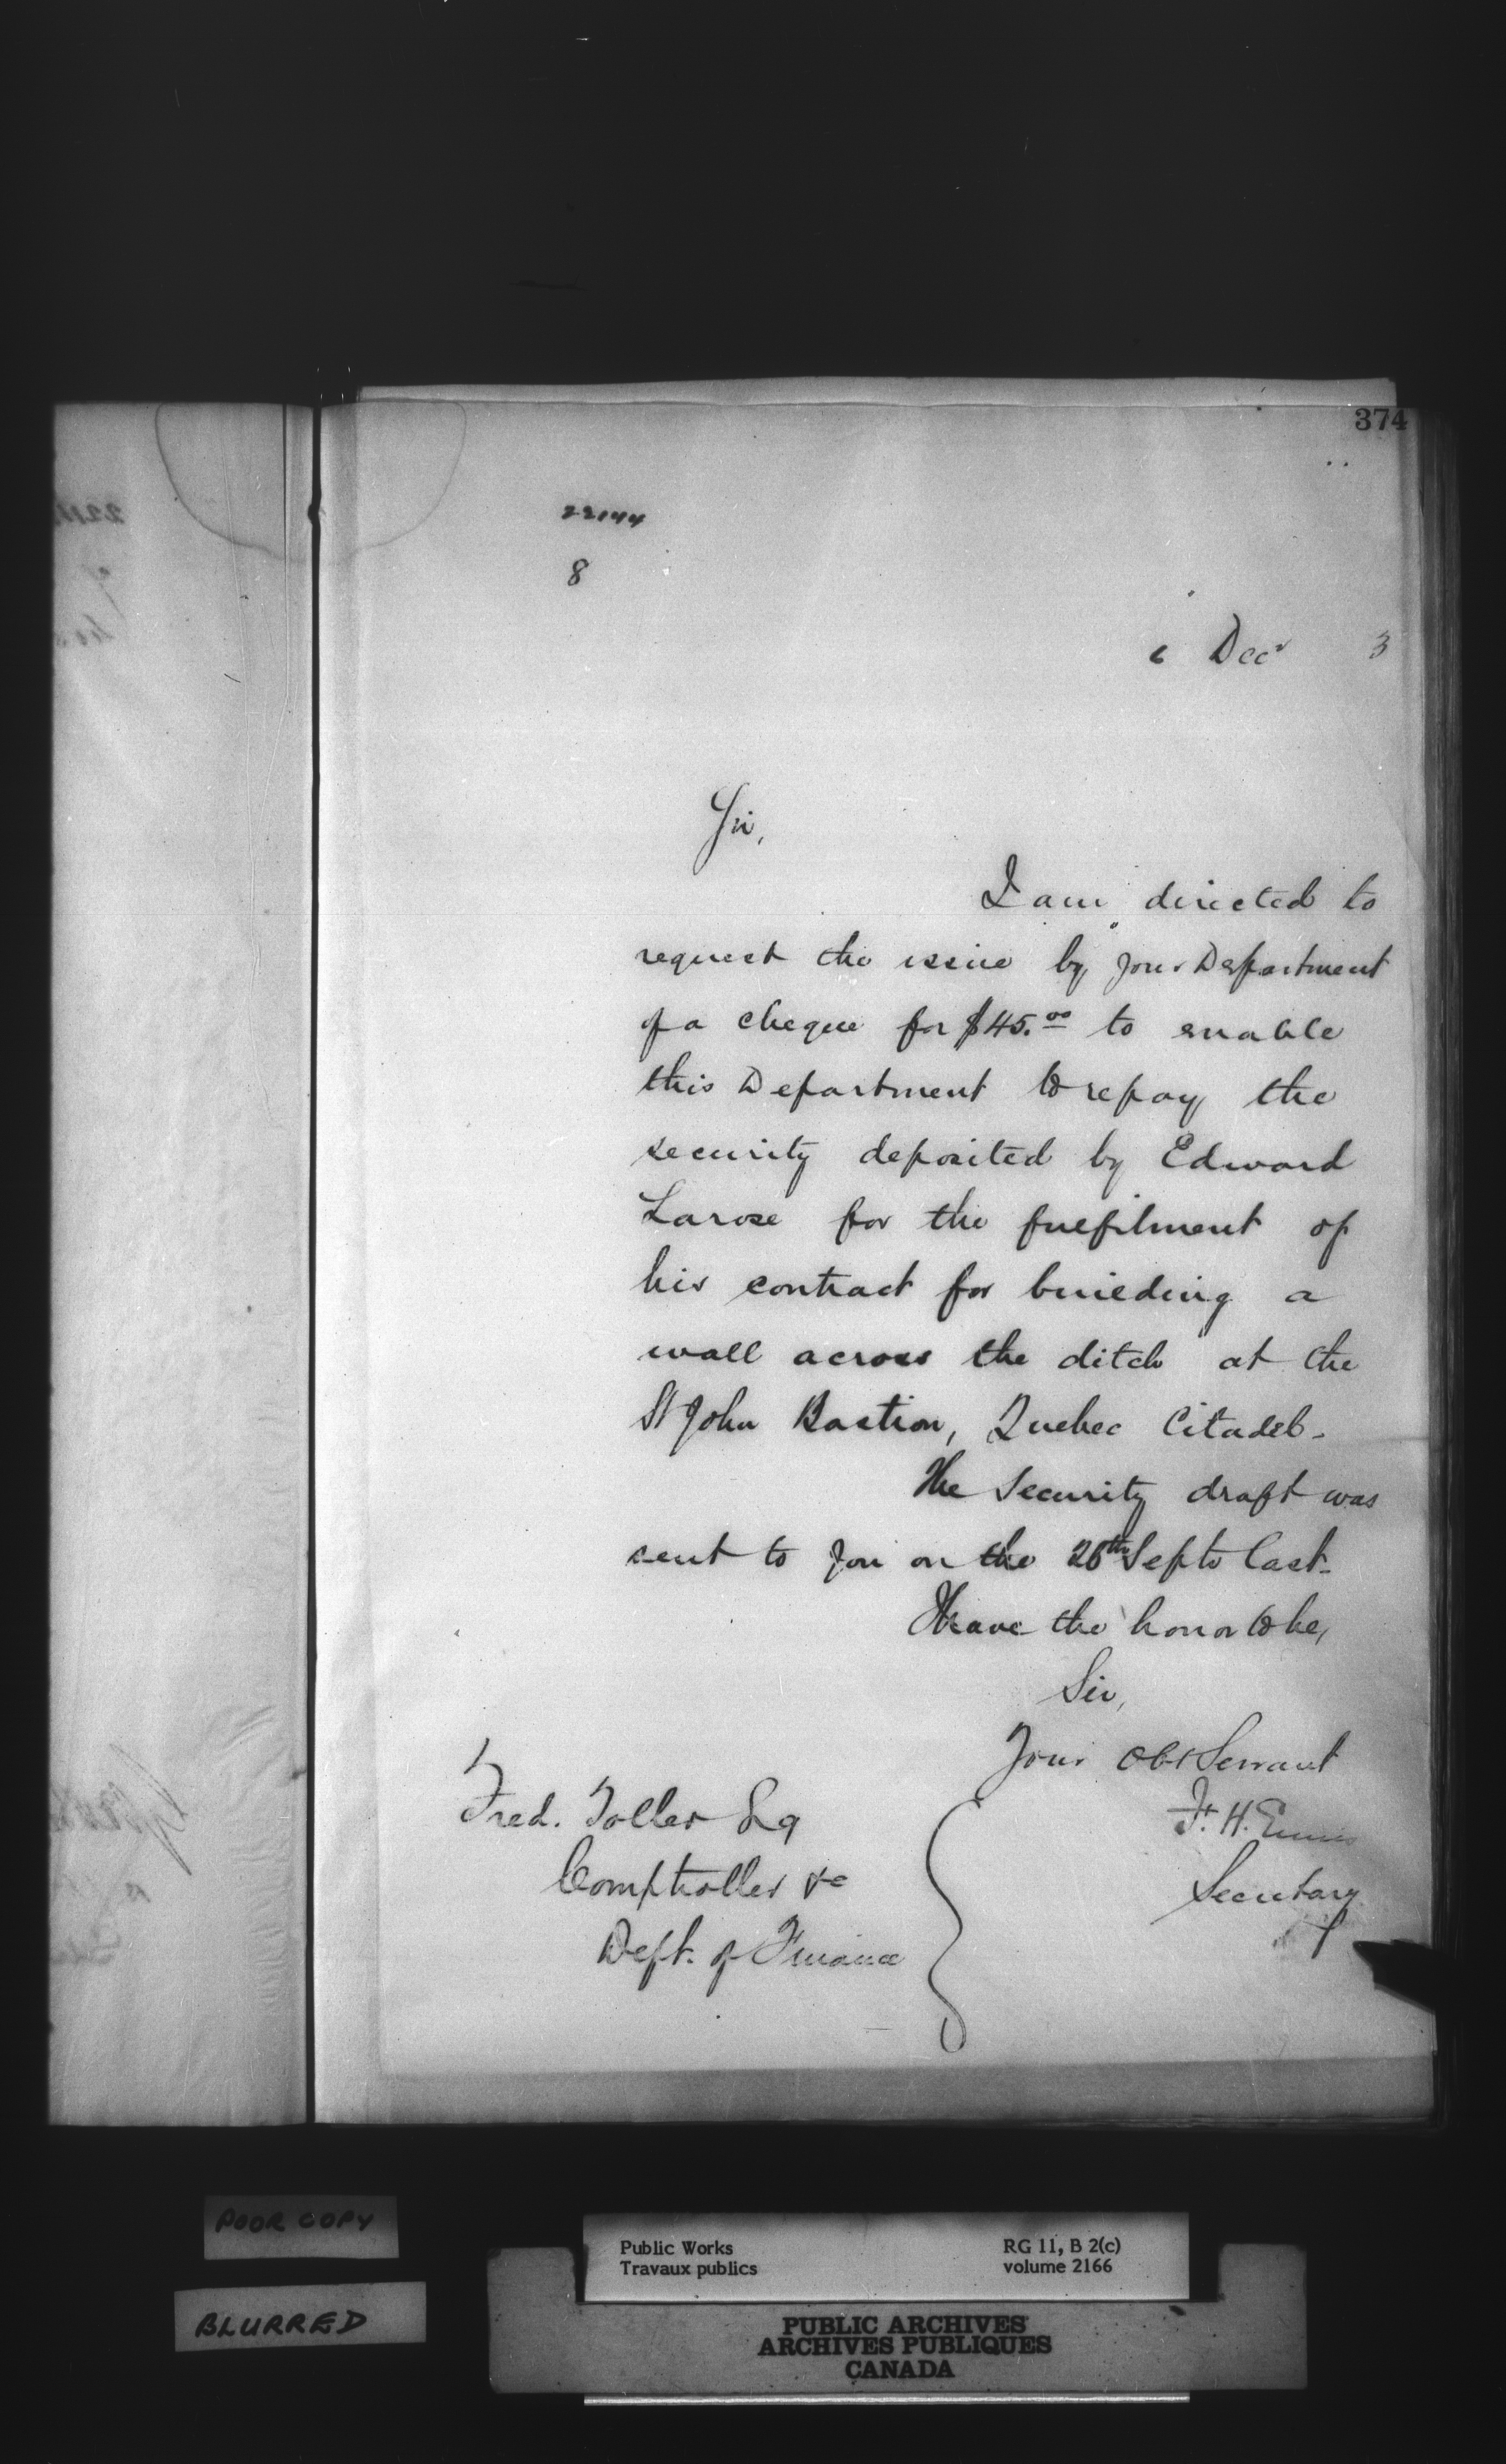 374
22144
8
6 Decr 3
Sir,
I am directed to
request the issue by your Department
of a cheque for $45.00 to enable
this Department to repay the
security deposited by Edward
Larose for the fulfilment of
his contract for building a
wall across the ditch at the
St John Bastion, Quebec Citadel.
The Security draft was
sent to you on the 26th Septr last.
I have the honor to be,
Sir,
Your Obt Servant
F. H. Ennis
Secretary
Fred. Toller Esq
Comptroller &c
Dept. of Finance
POOR COPY
BLURRED
Public Works RG 11, B 2(c)
Travaux publics volume 2166
PUBLIC ARCHIVES
ARCHIVES PUBLIQUES
CANADA